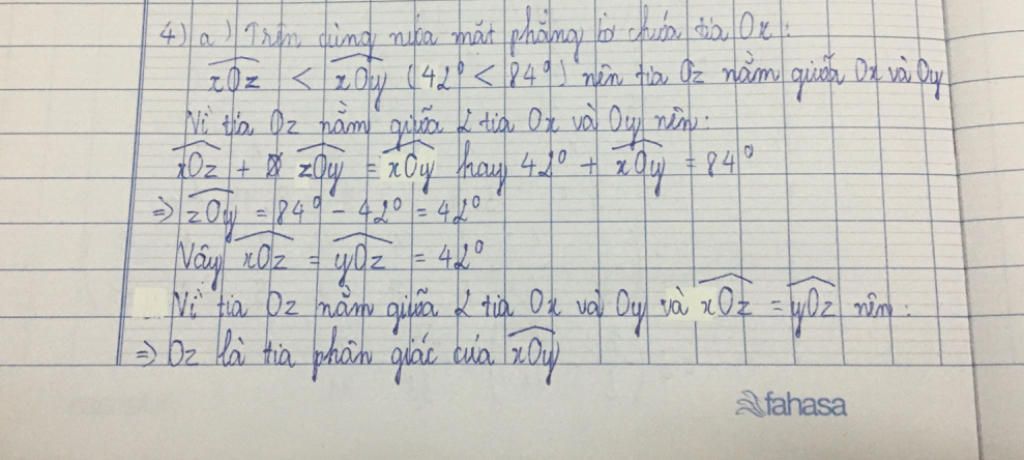 4) a) Trên cùng nửa mặt phẳng bờ chứa tia Ox:
xOz < xOy (42° < 84°) nên tia Oz nằm giữa Ox và Oy
Vì tia Oz nằm giữa 2 tia Ox và Oy nên:
xOz + zOy = xOy hay 42° + xOy = 84°
=> zOy = 84° - 42° = 42°
Vậy xOz = yOz = 42°
Vì tia Oz nằm giữa 2 tia Ox và Oy và xOz = yOz nên:
=> Oz là tia phân giác của xOy
fahasa